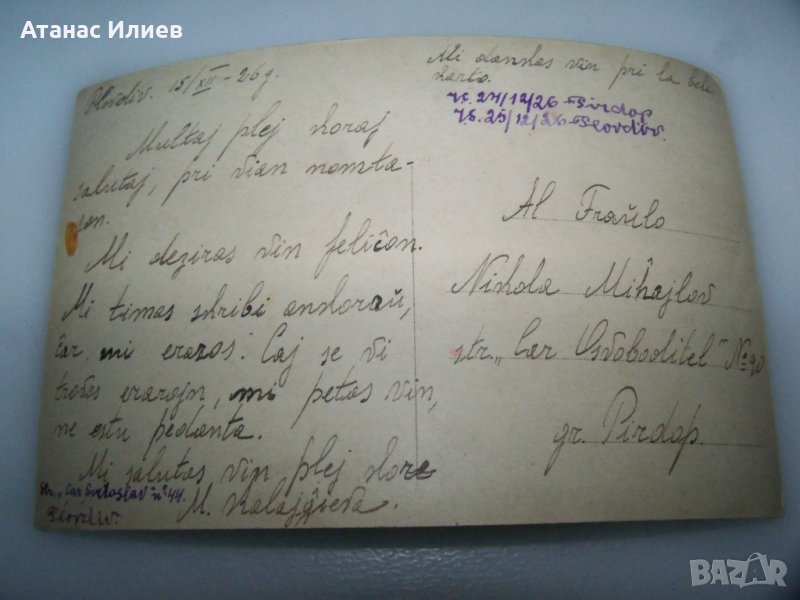 Атанас Илиев
Plovdiv. 15/XII-26 g.
Multaj plej koraj
salutaj, pri vian nomta-
gon.
Mi deziras vin feliĉon.
Mi timas skribi ankoraŭ,
ĉar mi eraros. Caj se vi
trovos erarojn, mi petas vin,
ne estu pedanta.
Mi salutas vin plej kore
M. Kalajĝieva.
str. „Car Svetoslav" № 44.
Plovdiv.
Mi dankas vin pri la bela
karto.
24/12/26 Pirdop
25/12/26 Plovdiv.
Al Fraŭlo
Nikola Miĥajlov
str. „Car Osvoboditel" № 90
gr. Pirdop.
BAZAR
bazar.bg